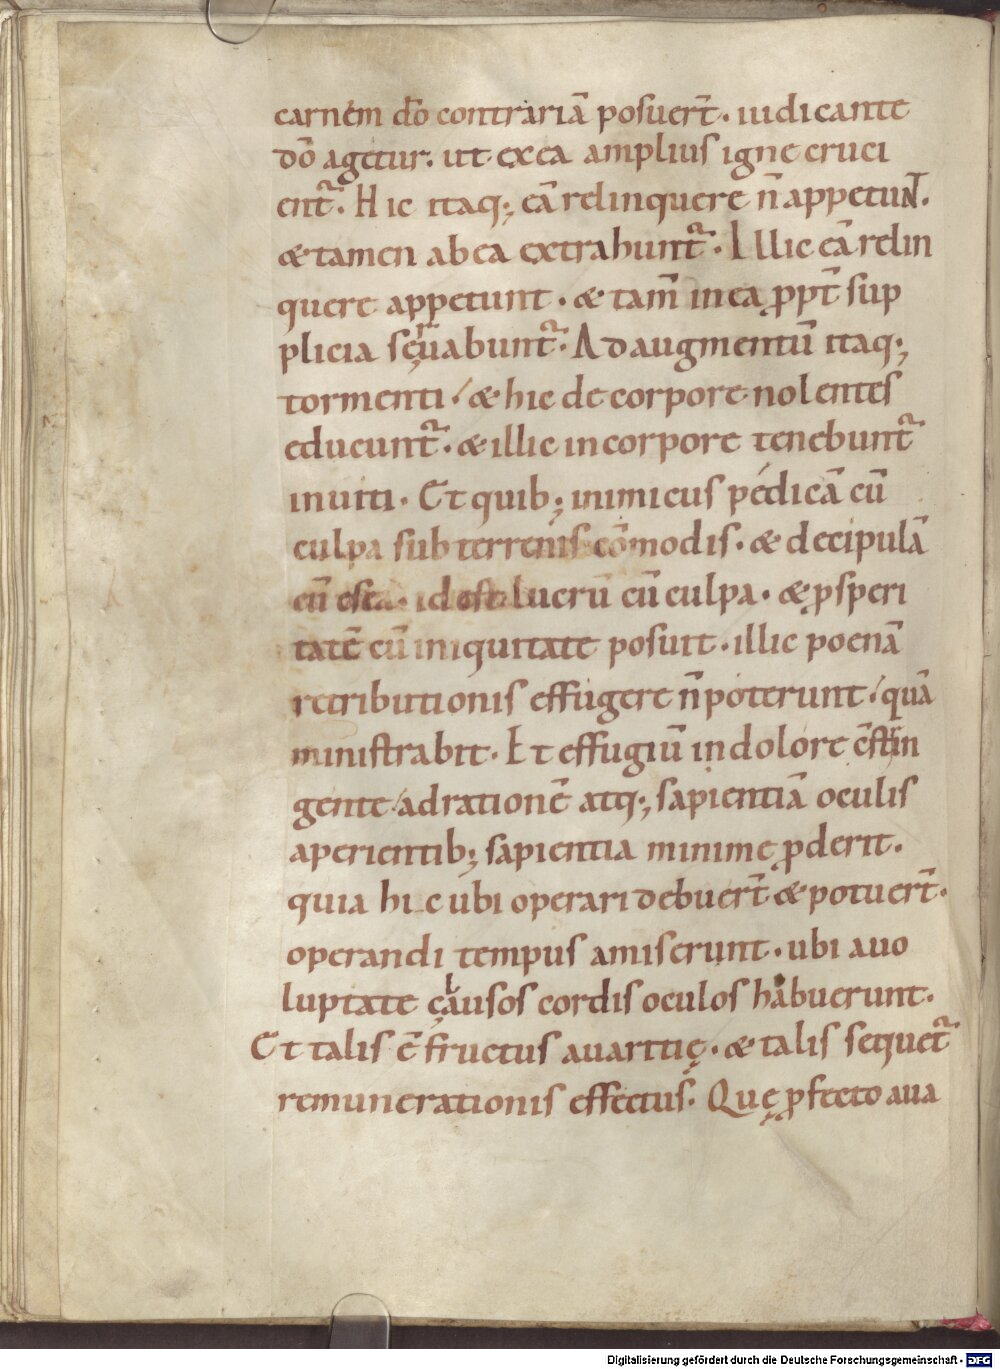 carnem dō contrariā posuer̄t. iudicante
dō agetur. ut ex ea amplius igne cruci
ent̄. Hic itaq; eā relinquere n̄ appetunt.
& tamen ab ea extrahunt̄. Illic eā relin
quere appetunt. & tam̄ in ea ppt̄ sup
plicia seruabunt̄. Ad augmentū itaq;
tormenti. & hic de corpore nolentes
educunt̄. & illic in corpore tenebunt̄
inuiti. Et quib; inimicus pedicā cū
culpa sub terrenis cōmodis. & decipulā
cū esca. id est lucrū cū culpa. & psperi
tatē cū iniquitate posuit. illic poenā
retributionis effugere n̄ poterunt. quā
ministrabit. Et effugiū in dolore c̄stin
gente ad rationē atq; sapientiā oculis
aperientib; sapientia minime pderit.
quia hic ubi operari debuer̄t & potuer̄t.
operandi tempus amiserunt. ubi a uo
luptate clausos cordis oculos habuerunt.
Et talis ē fructus auaritię. & talis sequet̄
remunerationis effectus. Quę pfecto aua
Digitalisierung gefördert durch die Deutsche Forschungsgemeinschaft - DFG